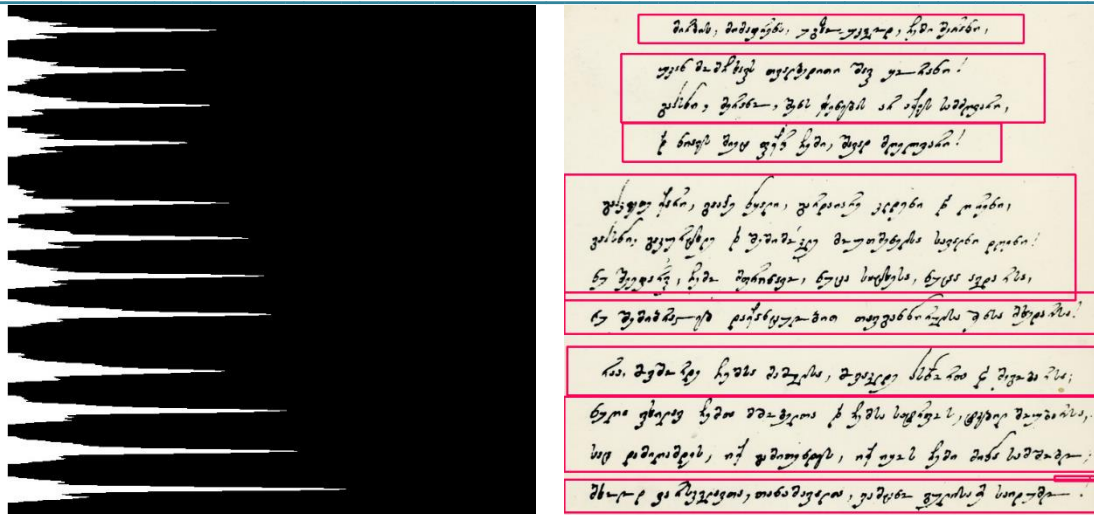 მირბის, მიმაფრენს, უგზო უკვლოდ, ჩემი მერანი,
უკან მომჩხავს თვალბედითი შავ ყორანი!
გასწი, მერანო, შენს ჭენებას არ აქვს სამძღვარი,
და ნიავს მიეც ფიქრი ჩემი, შავად მღელვარი!
გაკვეთე ქარი, გააპე წყალი, გარდაიარე კლდენი და ღრენი,
გასწი, გაკურცხლე და შემიმოკლე მოუთმენელსა სავალნი დღენი!
ნუ შეეფარვი, ჩემო მფრინავო, ნუცა სიცხესა, ნუცა ავდარსა,
ნუ შემიბრალებ დაქანცულობით თავგანწირულსა შენსა მხედარსა!
რაა, მოვშორდე ჩემსა მამულსა, მოვაკლდე სწორთა და მეგობარსა;
ნუღა ვიხილავ ჩემთა მშობელთა და ჩემსა სატრფოს, ტკბილ მოუბარსა,
საც დამიღამდეს, იქ გამითენდეს, იქ იყოს ჩემი მიწა სამშობლო;
მხოლოდ ვარსკვლავთა, თანამავალთა, ვამცნო გულისა მე საიდუმლო!